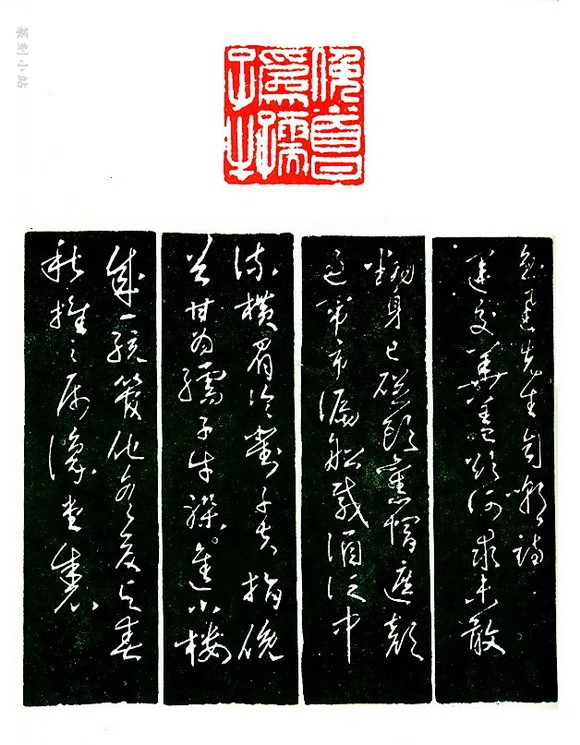 篆刻小站
俛首
爲孺
子牛
魯迅先生自嘲詩
運交華蓋欲何求未敢
翻身已碰頭舊帽遮顏
過鬧市漏船載酒泛中
流橫眉冷對千夫指俛
首甘為孺子牛躲進小樓
成一統管他冬夏與春
秋推之屬豫堂製